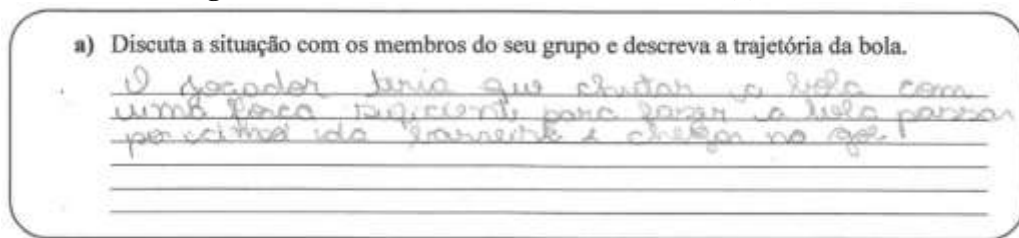 a) Discuta a situação com os membros do seu grupo e descreva a trajetória da bola.
O jogador teria que chutar a bola com
uma força suficiente para fazer a bola passar
por cima da barreira e chegar no gol.